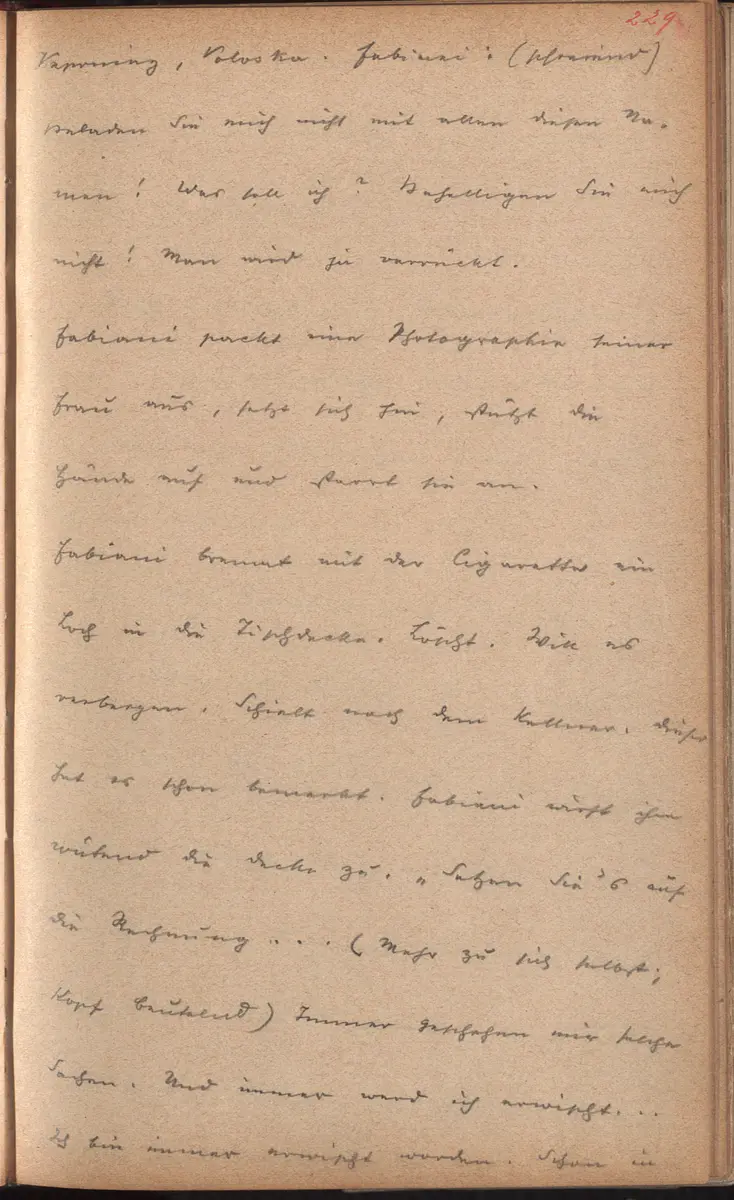 229
Voloska. Fabiani: (schreiend)
beladen Sie mich nicht mit allen diesen Na-
men! Was soll ich? Behelligen Sie mich
nicht! Man wird ja verrückt.
Fabiani packt eine Photographie seiner
Frau aus, setzt sich hin, stützt die
Hände auf und starrt sie an.
Fabiani brennt mit der Cigarette ein
Loch in die Tischdecke. Löscht. Will es
verbergen. Schielt nach dem Kellner. Dieser
hat es schon bemerkt. Fabiani wirft ihm
wütend die Decke zu. „Setzen Sie's auf
die Rechnung.... (Mehr zu sich selbst;
Kopf beutelnd) Immer geschehen mir solche
Sachen. Und immer werd ich erwischt...
Ich bin immer erwischt worden. Schon in